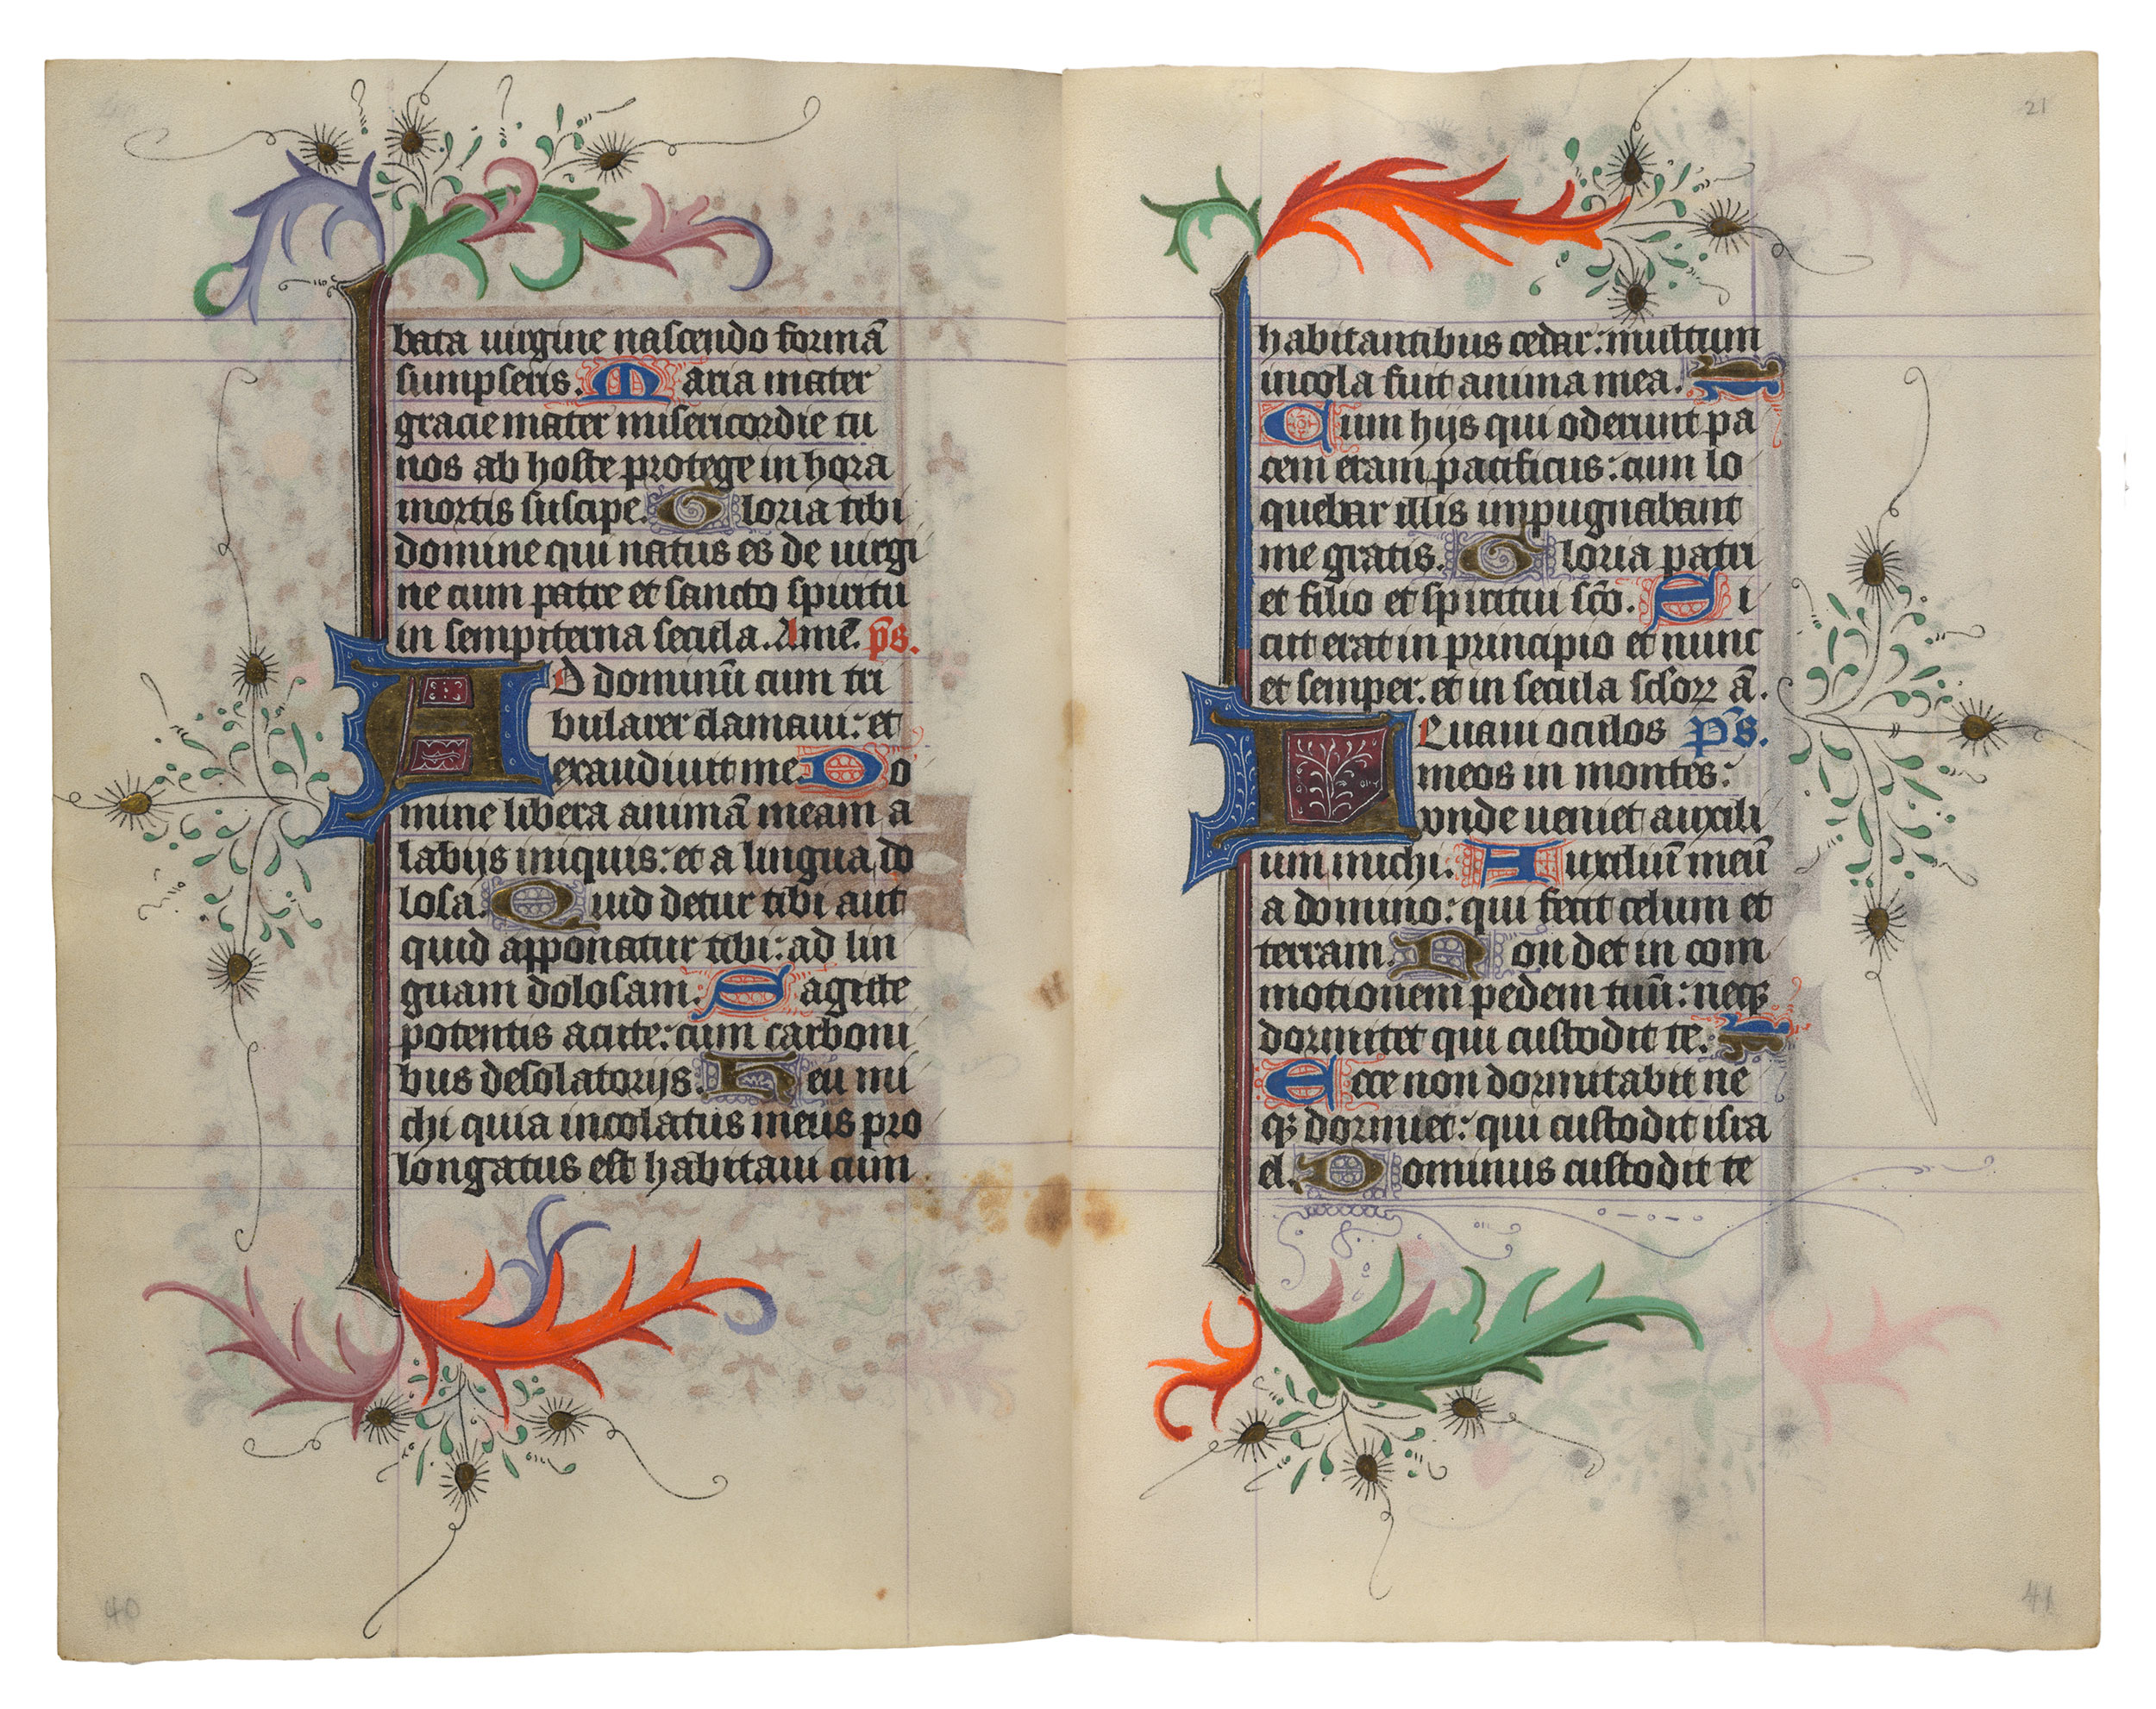 bata uirgine nascendo formā
sumpseris. Maria mater
gracie mater misericordie tu
nos ab hoste protege in hora
mortis suscipe. Gloria tibi
domine qui natus es de uirgi
ne cum patre et sancto spiritu
in sempiterna secula. Amē. p̄s.
AD dominū cum tri
bularer clamaui: et
exaudiuit me Do
mine libera animā meam a
labijs iniquis: et a lingua do
losa. Quid detur tibi aut
quid apponatur tibi: ad lin
guam dolosam. Sagitte
potentis acute: cum carboni
bus desolatorijs. Heu mi
chi quia incolatus meus pro
longatus est habitaui cum
40
21
habitantibus cedar: multum
incola fuit anima mea.
Cum hijs qui oderunt pa
cem eram pacificus: cum lo
quebar illis inpugnabant
me gratis. Gloria patri
et filio et spiritui scō. Si
cut erat in principio et nunc
et semper. et in secula sclorꝝ ā.
LEuaui oculos p̄s.
meos in montes:
vnde ueniet auxili
um michi. Auxiliū meū
a domino: qui fecit celum et
terram. Non det in com
motionem pedem tuū: neqꝫ
dormitet qui custodit te.
Ecce non dormitabit ne
qꝫ dormiet: qui custodit isra
el. Dominus custodit te
41